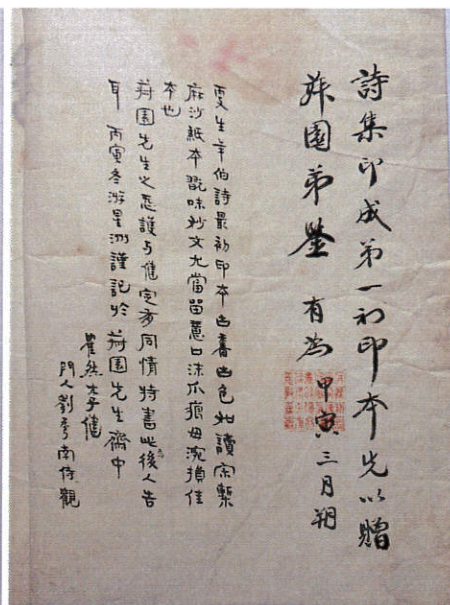 詩集印成第一初印本先以贈
菽園弟鑒 有為 甲寅三月朔
更生年伯詩最初印本古書古色如讀宋槧
麻沙紙本翫味抄文尤當留意口沫爪痕毋涴損佳
本也
菽園先生之愛護与健定亦同情特書此後人告
耳 丙寅冬游星洲謹記於菽園先生齋中
瞿然太子健
門人劉南侍觀